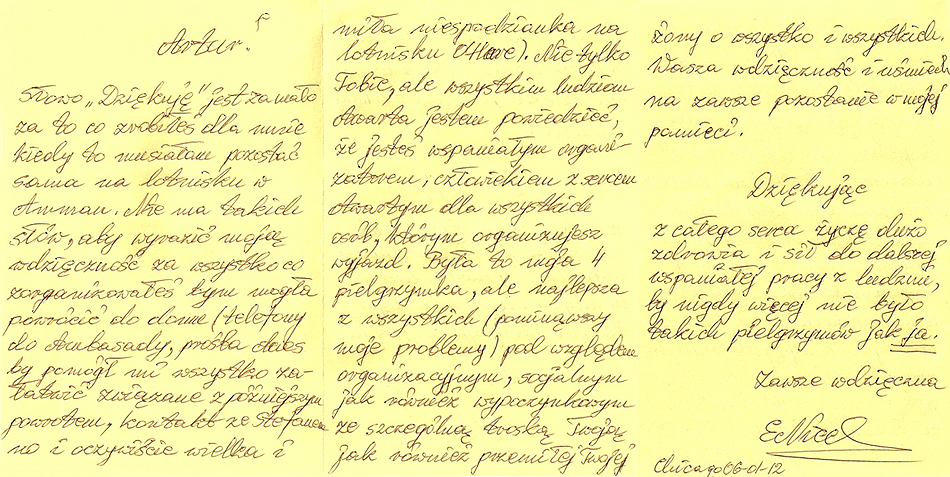 Artur!
Słowo „Dziękuję" jest za mało
za to co zrobiłeś dla mnie
kiedy to musiałam pozostać
sama na lotnisku w
Amman. Nie ma takich
słów, aby wyrazić moją
wdzięczność za wszystko co
zorganizowałeś bym mogła
powrócić do domu (telefony
do Ambasady, prośba
by pomógł mi wszystko za-
łatwić związane z późniejszym
powrotem, kontakt ze Stefanem
no i oczywiście wielka i
miła niespodzianka na
lotnisku O'Hare). Nie tylko
Tobie, ale wszystkim ludziom
otwarta jestem powiedzieć,
że jesteś wspaniałym organi-
zatorem, człowiekiem z sercem
otwartym dla wszystkich
osób, którym organizujesz
wyjazd. Była to moja 4
pielgrzymka, ale najlepsza
z wszystkich (pominąwszy
moje problemy) pod względem
organizacyjnym, socjalnym
jak również wypoczynkowym
ze szczególną troską Twoją
jak również przemiłej Twojej
żony o wszystko i wszystkich.
Wasza wdzięczność i uśmiech
na zawsze pozostanie w mojej
pamięci.
Dziękując
z całego serca życzę dużo
zdrowia i sił do dalszej
wspaniałej pracy z ludźmi,
by nigdy więcej nie było
takich pielgrzymów jak ja.
Zawsze wdzięczna
Chicago 06-01-12